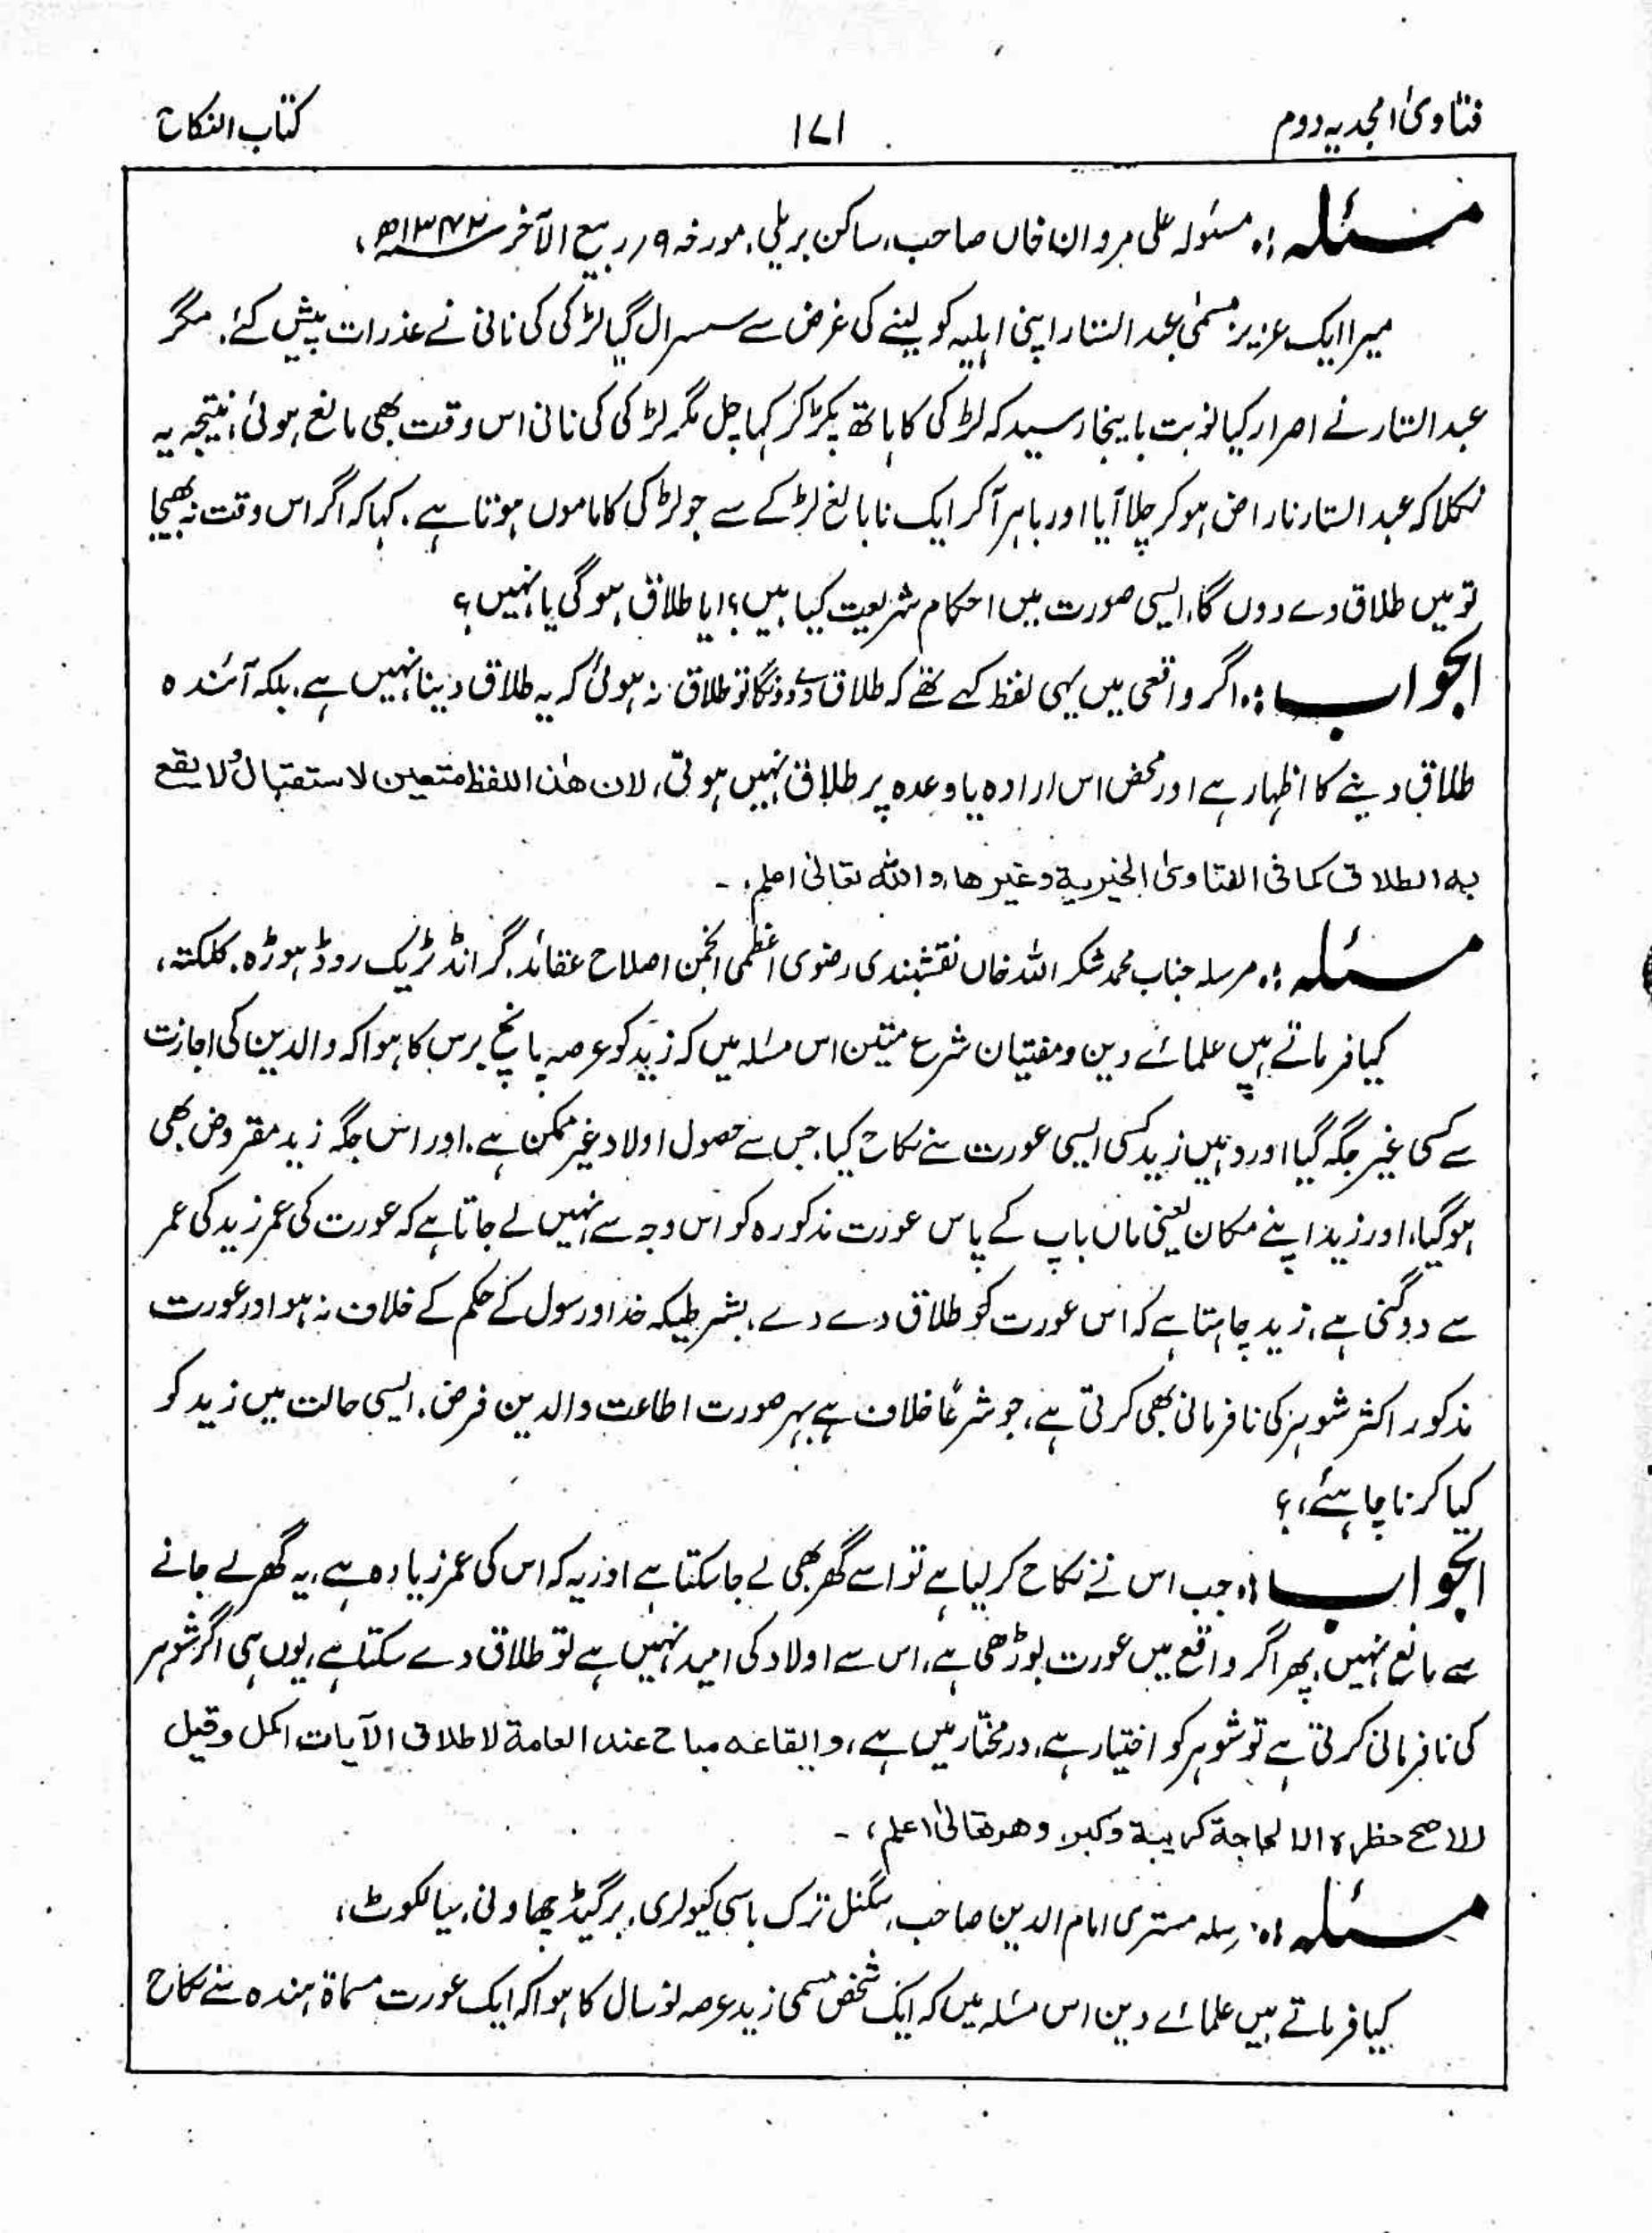 فتاویٰ امجدیہ دوم
۱۷۱
کتاب النکاح
مسئلہ :۔ مسئولہ علی مروان خاں صاحب، ساکن بریلی، مورخہ ۹؍ ربیع الآخر ۱۳۴۳ھ،
میرا ایک عزیز مسمیٰ عبد الستار اپنی اہلیہ کو لینے کی غرض سے سسرال گیا لڑکی کی نانی نے عذرات پیش کئے، مگر
عبد الستار نے اصرار کیا نوبت باینجا رسید کہ لڑکی کا ہاتھ پکڑ کر کہا چل مگر لڑکی کی نانی اس وقت بھی مانع ہوئی، نتیجہ یہ
نکلا کہ عبد الستار ناراض ہو کر چلا آیا اور باہر آکر ایک نابالغ لڑکے سے جو لڑکی کا ماموں ہوتا ہے، کہا کہ اگر اس وقت نہ بھیجا
تو میں طلاق دے دوں گا، ایسی صورت میں احکام شریعت کیا ہیں؟ ایا طلاق ہوگی یا نہیں؟
الجواب :۔ اگر واقعی میں یہی لفظ کہے تھے کہ طلاق دے دونگا تو طلاق نہ ہوئی کہ یہ طلاق دینا نہیں ہے، بلکہ آئندہ
طلاق دینے کا اظہار ہے اور محض اس ارادہ یا وعدہ پر طلاق نہیں ہوتی، لان ھذا اللفظ متعین لاستقبال ولا یقع
بہ الطلاق کما فی الفتاویٰ الخیریة وغیرھا، واللہ تعالیٰ اعلم، ۔
مسئلہ :۔ مرسلہ جناب محمد شکر اللہ خاں نقشبندی رضوی اعظمی انجمن اصلاح عقائد، گرانڈ ٹریک روڈ ہوڑہ، کلکتہ،
کیا فرماتے ہیں علمائے دین و مفتیان شرع متین اس مسئلہ میں کہ زید کو عرصہ پانچ برس کا ہوا کہ والدین کی اجازت
سے کسی غیر جگہ گیا اور وہیں زید کسی ایسی عورت سے نکاح کیا، جس سے حصول اولاد غیر ممکن ہے، اور اس جگہ زید مقروض بھی
ہوگیا، اور زید اپنے مکان یعنی ماں باپ کے پاس عورت مذکورہ کو اس وجہ سے نہیں لے جاتا ہے کہ عورت کی عمر زید کی عمر
سے دوگنی ہے، زید چاہتا ہے کہ اس عورت کو طلاق دے دے، بشرطیکہ خدا ورسول کے حکم کے خلاف نہ ہو اور عورت
مذکور اکثر شوہر کی نافرمانی بھی کرتی ہے، جو شرعًا خلاف ہے بہر صورت اطاعت والدین فرض، ایسی حالت میں زید کو
کیا کرنا چاہئے،؟
الجواب :۔ جب اس نے نکاح کر لیا ہے تو اسے گھر بھی لے جا سکتا ہے اور یہ کہ اس کی عمر زیادہ ہے، یہ گھر لے جانے
سے مانع نہیں، پھر اگر واقع میں عورت بوڑھی ہے، اس سے اولاد کی امید نہیں ہے تو طلاق دے سکتا ہے، یوں ہی اگر شوہر
کی نافرمانی کرتی ہے تو شوہر کو اختیار ہے، در مختار میں ہے، وایقاعہ مباح عند العامة لاطلاق الآیات اکمل وقیل
الاصح حظرہ الا لحاجة کریبة وکبر، وھو تعالیٰ اعلم، ۔
مسئلہ :۔ مرسلہ مستری امام الدین صاحب، سگنل ترک باسی کیولری، برگیڈ چھاونی، سیالکوٹ،
کیا فرماتے ہیں علمائے دین اس مسئلہ میں کہ ایک شخص مسمی زید عرصہ نو سال کا ہوا کہ ایک عورت مسماۃ ہندہ سے نکاح